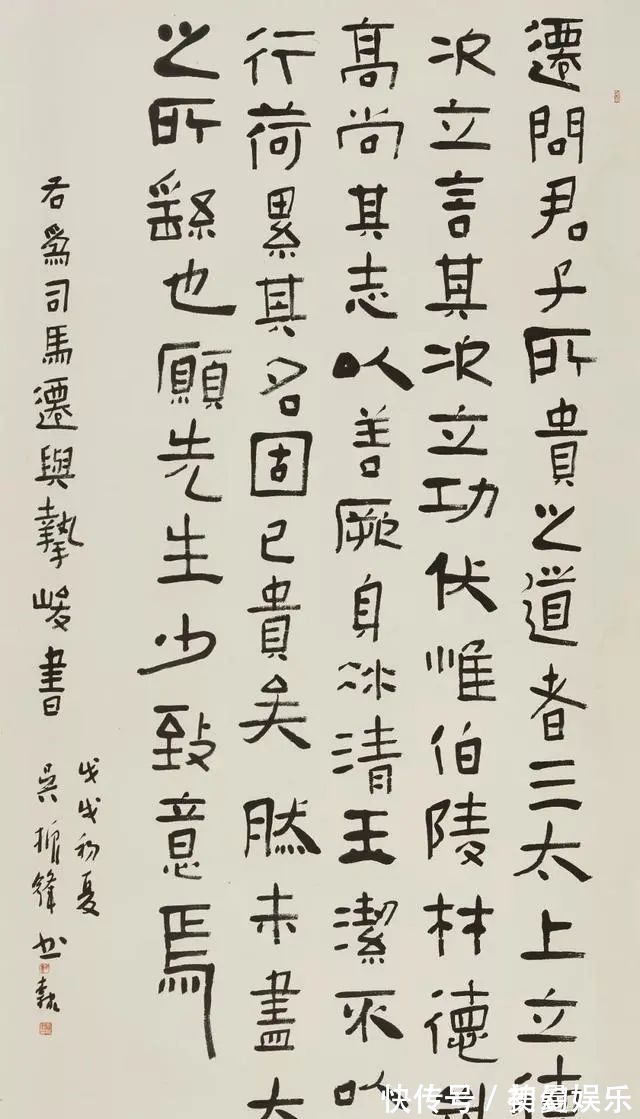 遷問君子所貴之道者三太上立
次立言其次立功伏惟伯陵材德
高尚其志以善厥身冰清玉潔不以
行荷累其名固已貴矣然未盡太
之所繇也願先生少致意焉
右爲司馬遷與摯峻書
戊戌初夏
吳振鋒書
快传号 / 娱乐